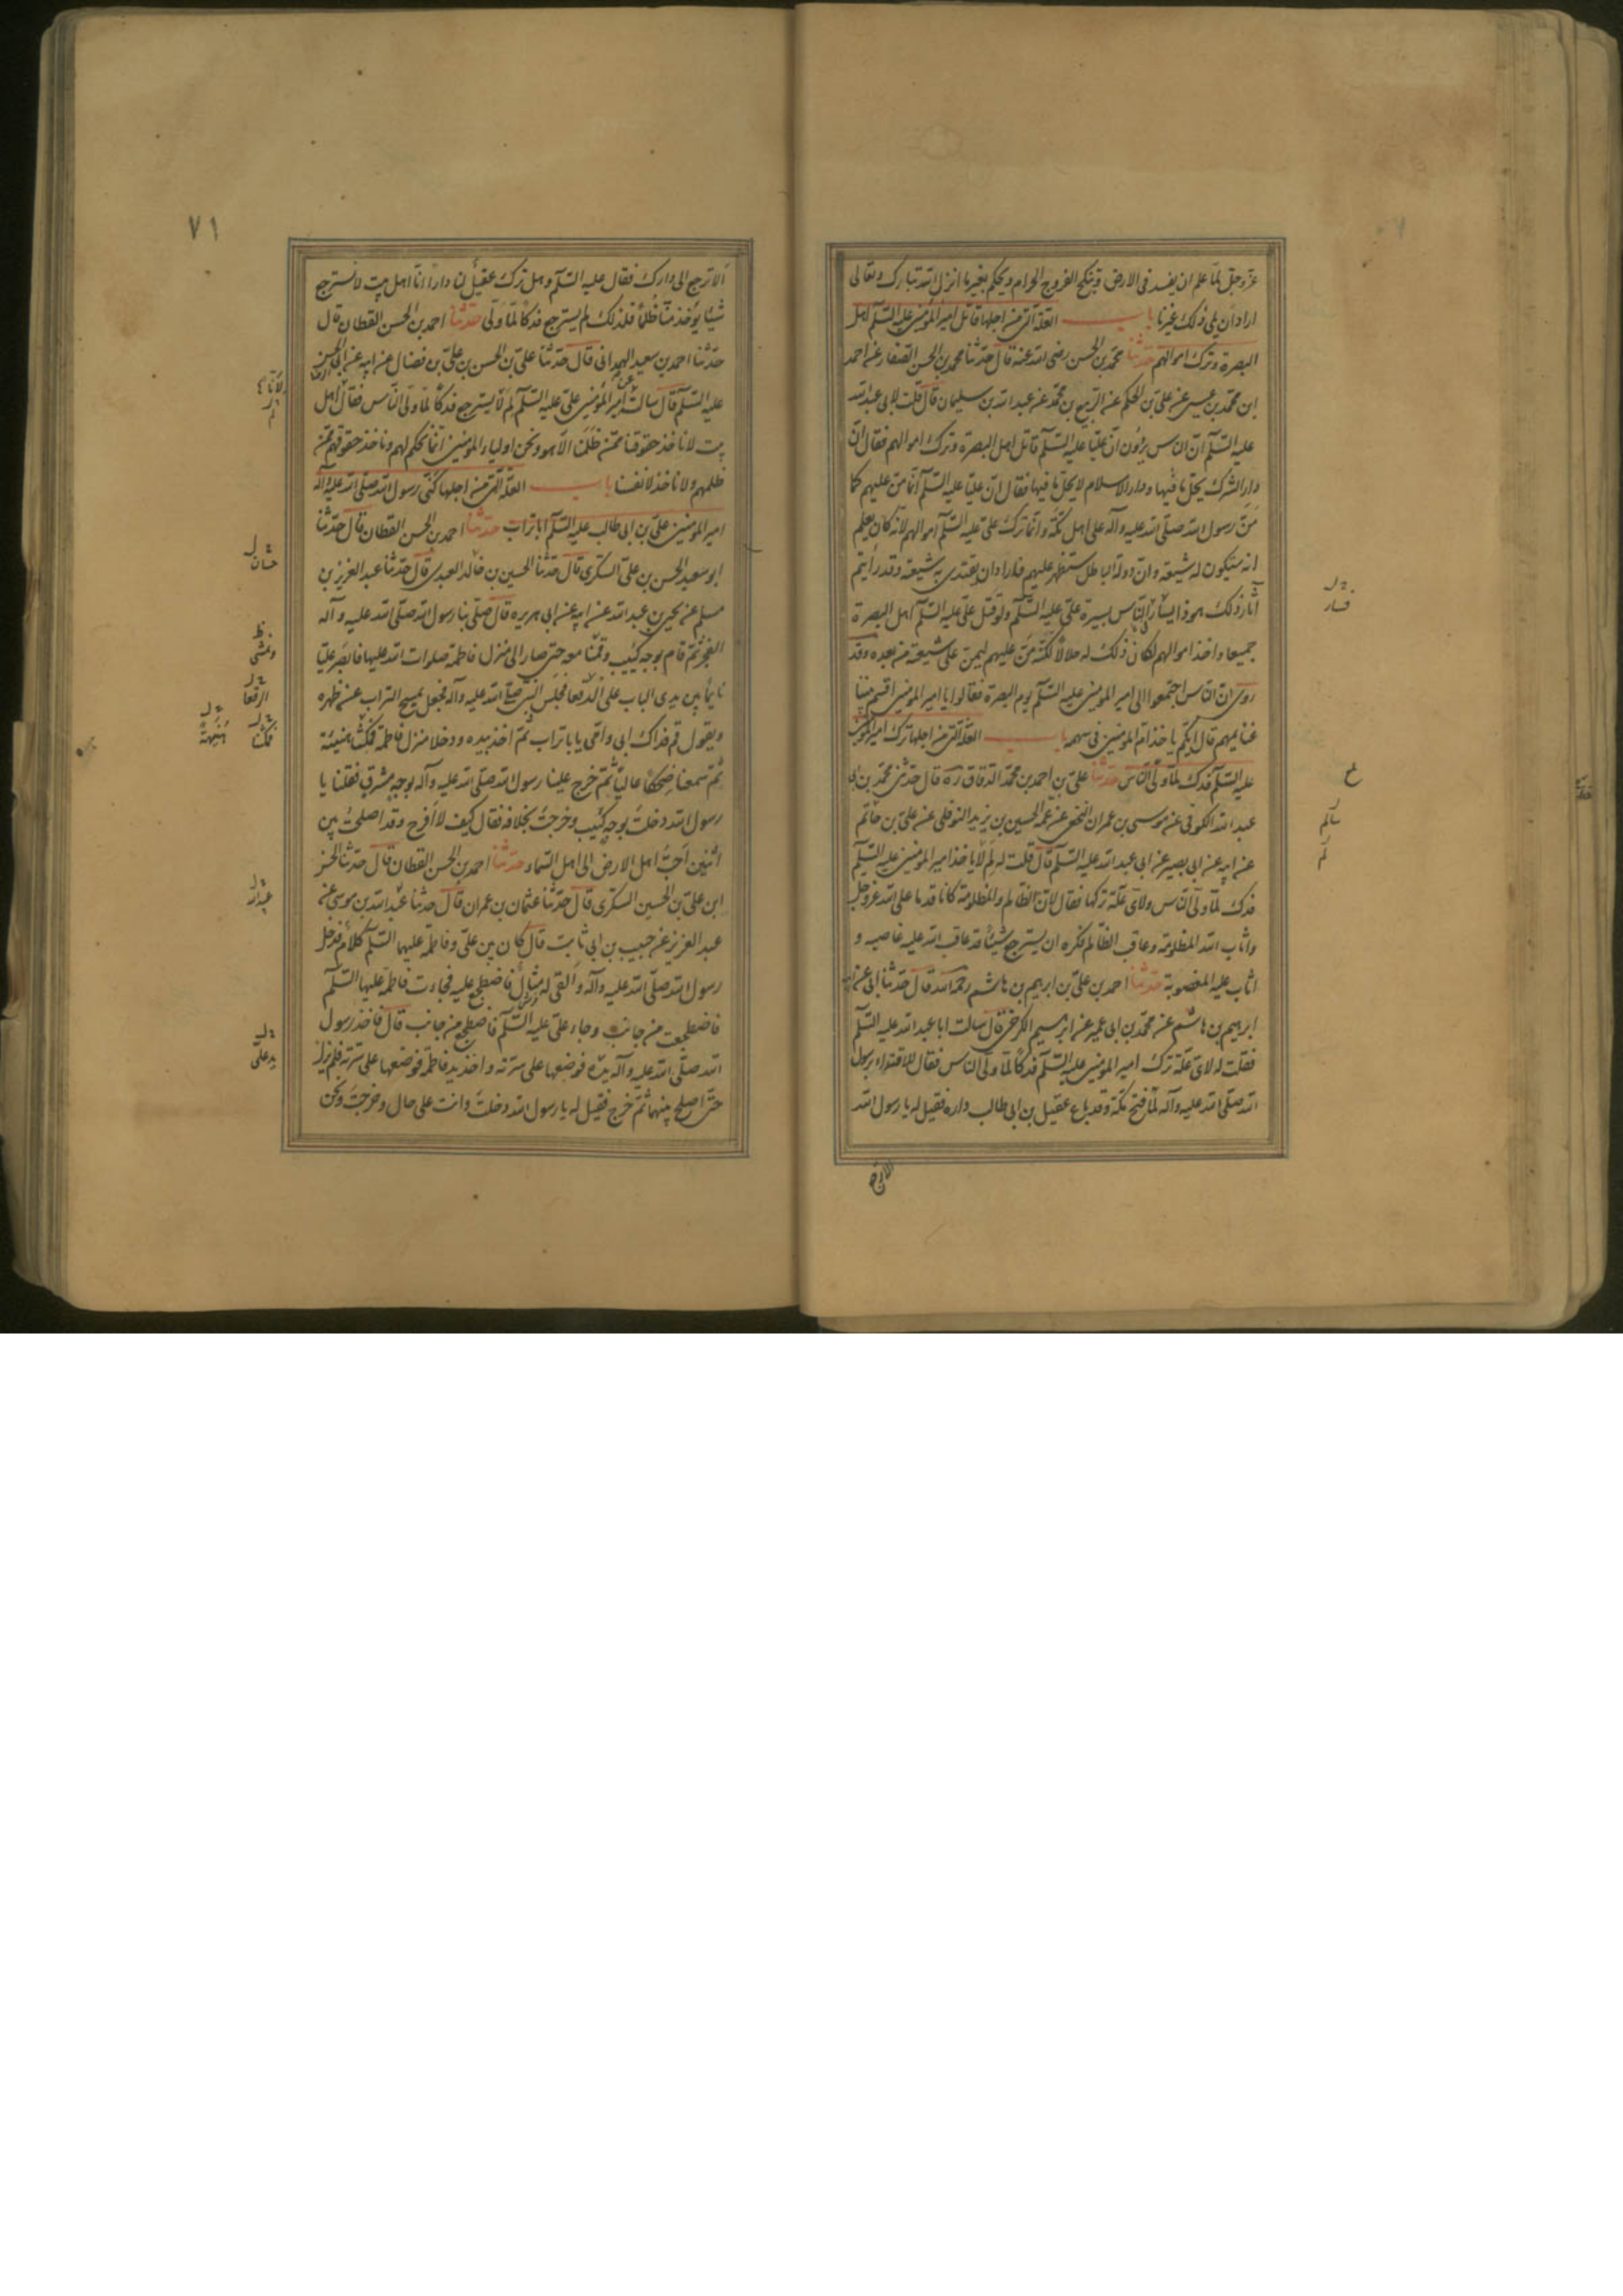 عزّ وجلّ لمّا علم ان يفسد فى الارض وينكح الفروج الحرام ويحكم بغير ما انزل الله تبارك وتعالى
اراد ان يلى ذلك غيرنا باب العلّة الّتى من اجلها قاتل امير المؤمنين عليه السّلم اهل
البصرة وترك اموالهم حدّثنا محمّد بن الحسن رضى الله عنه قال حدّثنا محمّد بن الحسن الصّفار عن احمد
ابن محمّد بن عيسى عن علىّ بن الحكم عن الرّبيع بن محمّد عن عبد الله بن سليمان قال قلت لابى عبد الله
عليه السّلم انّ النّاس يروون انّ عليّا عليه السّلم قاتل اهل البصرة وترك اموالهم فقال انّ
دار الشّرك يحلّ ما فيها ودار الاسلام لا يحلّ ما فيها فقال انّ عليّا عليه السّلم انّما منّ عليهم كما
منّ رسول الله صلّى الله عليه وآله على اهل مكّة وانّما ترك علىّ عليه السّلم اموالهم لانّه كان يعلم
انه سيكون له شيعة وانّ دولة الباطل ستظهر عليهم فاراد ان يقتدى به شيعته وقد رايتم
آثار ذلك هو ذا يسار النّاس بسيرة علىّ عليه السّلم ولو قتل علىّ عليه السّلم اهل البصرة
جميعا واخذ اموالهم لكان ذلك له حلالا لكنّه منّ عليهم ليمنّ على شيعته من بعده وقد
روى انّ النّاس اجتمعوا الى امير المؤمنين عليه السّلم يوم البصرة فقالوا يا امير المؤمنين اقسم بيننا
غنايمهم قال ايّكم ياخذ امّ المؤمنين فى سهمه باب العلّة الّتى من اجلها ترك امير المؤمنين
عليه السّلم فدك لمّا ولّى النّاس حدّثنا علىّ بن احمد بن محمّد الدقّاق ره قال حدّثنى محمّد بن ابى
عبد الله الكوفى عن موسى بن عمران النّخعى عن عمّه الحسين بن يزيد النوفلى عن علىّ بن حاتم
عن ابيه عن ابى بصير عن ابى عبد الله عليه السّلم قال قلت له لم لا ياخذ امير المؤمنين عليه السّلم
فدك لمّا ولّى النّاس ولاىّ علّة تركها فقال لانّ الظّالم والمظلومة كانا قدما على الله عزّ وجلّ
واثاب الله المظلومة وعاقب الظّالم فكره ان يسترجع شيئا قد عاقب الله عليه غاصبه و
اثاب عليه المغصوبة حدّثنا احمد بن علىّ بن ابرهيم بن هاشم رحمه الله قال حدّثنا ابى عن ابيه
ابرهيم بن هاشم عن محمّد بن ابى عمير عن ابرهيم الكرخى قال سالت ابا عبد الله عليه السّلم
فقلت له لاىّ علّة ترك امير المؤمنين عليه السّلم فدكا لمّا ولّى النّاس فقال للاقتداء برسول
الله صلّى الله عليه وآله لمّا فتح مكّة وقد باع عقيل بن ابى طالب داره فقيل له يا رسول الله
الا ترجع
سار
سالم
٧١
الا ترجع الى دارك فقال عليه السّلم وهل ترك عقيل لنا دارا انّا اهل بيت لا نسترجع
شيئا يؤخذ منّا ظلما فلذلك لم يسترجع فدكا لمّا ولّى حدّثنا احمد بن الحسن القطان قال
حدّثنا احمد بن سعيد الهمدانى قال حدّثنا علىّ بن الحسن بن علىّ بن فضال عن ابيه عن ابى الحسن
عليه السّلم قال سالته عن امير المؤمنين علىّ عليه السّلم لم لا يسترجع فدكا لمّا ولّى النّاس فقال اهل
بيت لا ناخذ حقوقنا ممّن ظلمنا الّا هو ونحن اولياء المؤمنين انّما نحكم لهم وناخذ حقوقهم ممّن
ظلمهم ولا ناخذ لانفسنا باب العلّة الّتى من اجلها كنّى رسول الله صلّى الله عليه وآله
امير المؤمنين علىّ بن ابى طالب عليه السّلم ابا تراب حدّثنا احمد بن الحسن القطان قال حدّثنا
ابو سعيد الحسن بن علىّ السكّرى قال حدّثنا الحسين بن خالد العبدى قال حدّثنا عبد العزيز بن
مسلم عن يحيى بن عبد الله عن ابيه عن ابى هريره قال صلّى بنا رسول الله صلّى الله عليه وآله
الفجر ثمّ قام بوجه كئيب وقمنا معه حتى صار الى منزل فاطمة صلوات الله عليها فابصر عليّا
نايما بين يدى الباب على الدّقعا فجلس النّبى صلّى الله عليه وآله فجعل يمسح التراب عن ظهره
ويقول قم فداك ابى وامّى يا با تراب ثمّ اخذ بيده ودخلا منزل فاطمة فمكثنا هنيئة
ثمّ سمعنا ضحكا عاليا ثمّ خرج علينا رسول الله صلّى الله عليه وآله بوجه مشرق فقلنا يا
رسول الله دخلت بوجه كئيب وخرجت بخلافه فقال كيف لا افرح وقد اصلحت بين
اثنين احبّ اهل الارض الى اهل السّماء حدّثنا احمد بن الحسن القطان قال حدّثنا الحسن
ابن علىّ بن الحسين السكّرى قال حدّثنا عثمان بن عمران قال حدّثنا عبد الله بن موسى عن
عبد العزيز عن حبيب بن ابى ثابت قال كان بين علىّ وفاطمة عليهما السّلم كلام فدخل
رسول الله صلّى الله عليه وآله والقى له مثال فاضطجع عليه فجاءت فاطمة عليها السّلم
فاضطجعت من جانب وجاء علىّ عليه السّلم فاضطجع من جانب قال فاخذ رسول
الله صلّى الله عليه وآله يده فوضعها على سرّته واخذ يد فاطمة فوضعها على سرّته فلم يزل
حتّى اصلح بينهما ثمّ خرج فقيل له يا رسول الله دخلت وانت على حال وخرجت ونحن
حسان
ونمشى
الرقعا
هنيهة
فمكثنا
يد علىّ